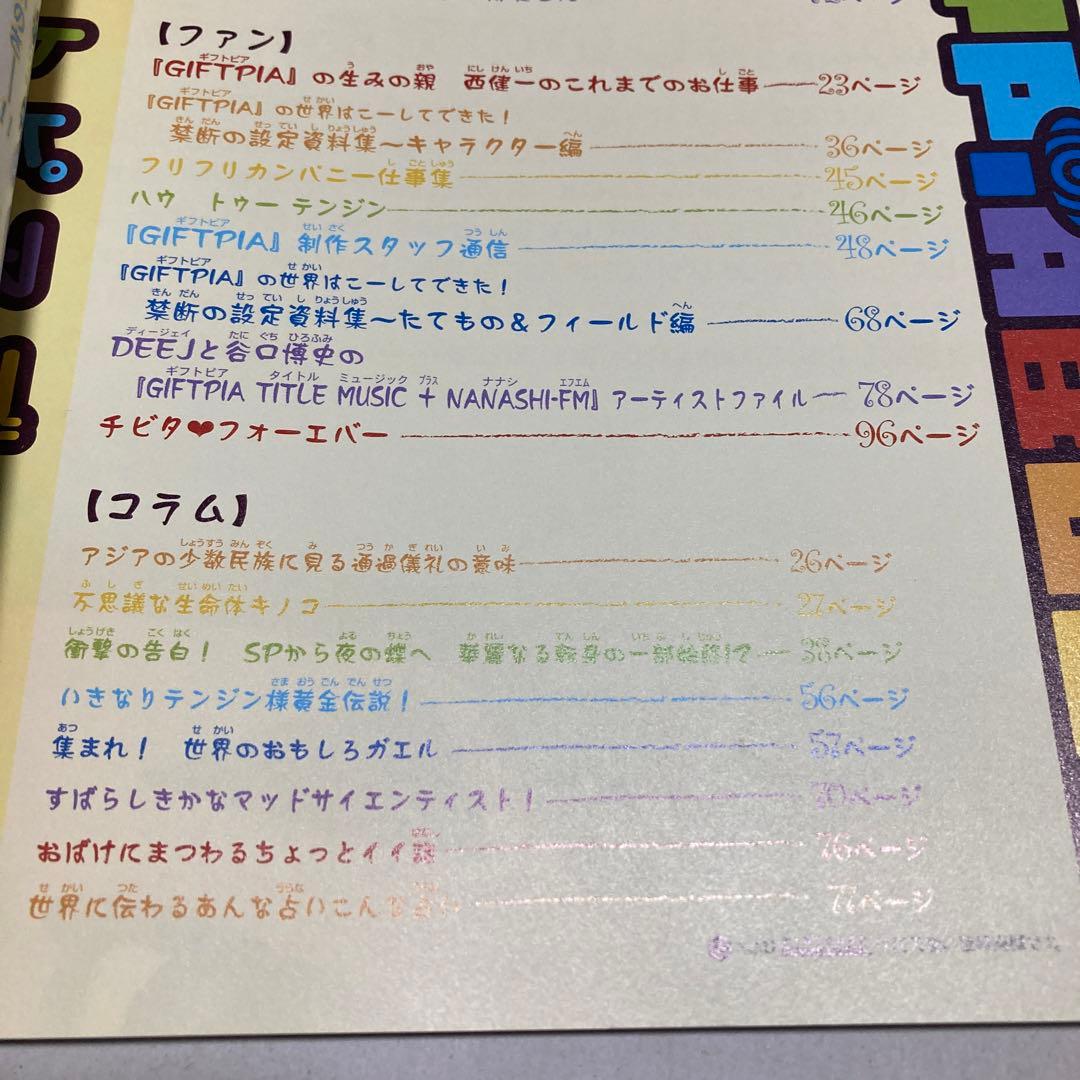 【ファン】
『GIFTPIA』の生みの親 西健一のこれまでのお仕事 23ページ
『GIFTPIA』の世界はこーしてできた!
禁断の設定資料集〜キャラクター編 36ページ
フリフリカンパニー仕事集 45ページ
ハウ トゥー テンジン 46ページ
『GIFTPIA』制作スタッフ通信 48ページ
『GIFTPIA』の世界はこーしてできた!
禁断の設定資料集〜たてもの&フィールド編 68ページ
DEEJと谷口博史の
『GIFTPIA TITLE MUSIC + NANASHI-FM』アーティストファイル 78ページ
チビタ❤フォーエバー 96ページ
【コラム】
アジアの少数民族に見る通過儀礼の意味 26ページ
不思議な生命体キノコ 27ページ
衝撃の告白! SPから夜の蝶へ 華麗なる転身の一部始終!? 38ページ
いきなりテンジン様黄金伝説! 56ページ
集まれ! 世界のおもしろガエル 57ページ
すばらしきかなマッドサイエンティスト! 70ページ
おばけにまつわるちょっとイイ話 76ページ
世界に伝わるあんな占いこんな占い 77ページ